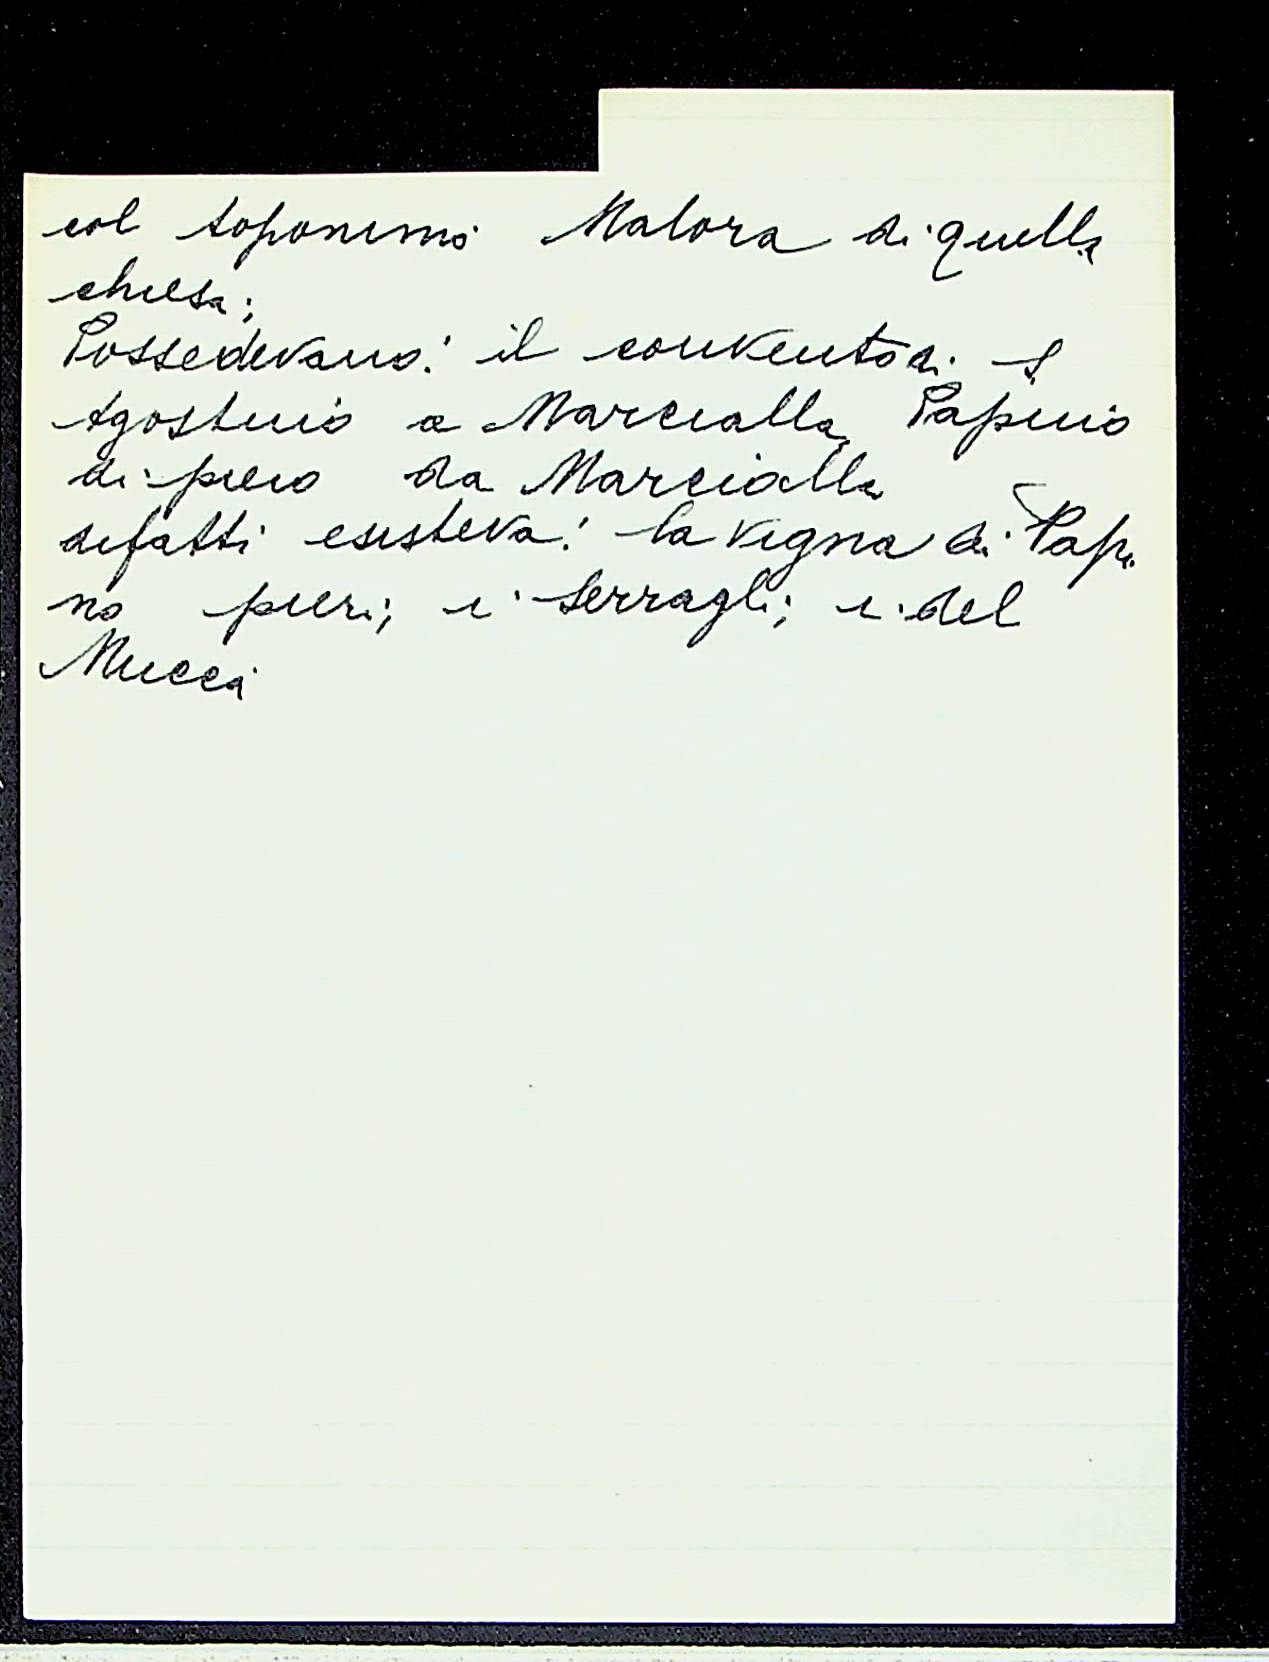 col toponimo Malora di quella
chiesa;
Possedevano: il convento di S
Agostino a Marcialla, Papino
di piero da Marcialla
difatti esisteva: la vigna di Papi
no pieri; i Serragli; i del
Mucci